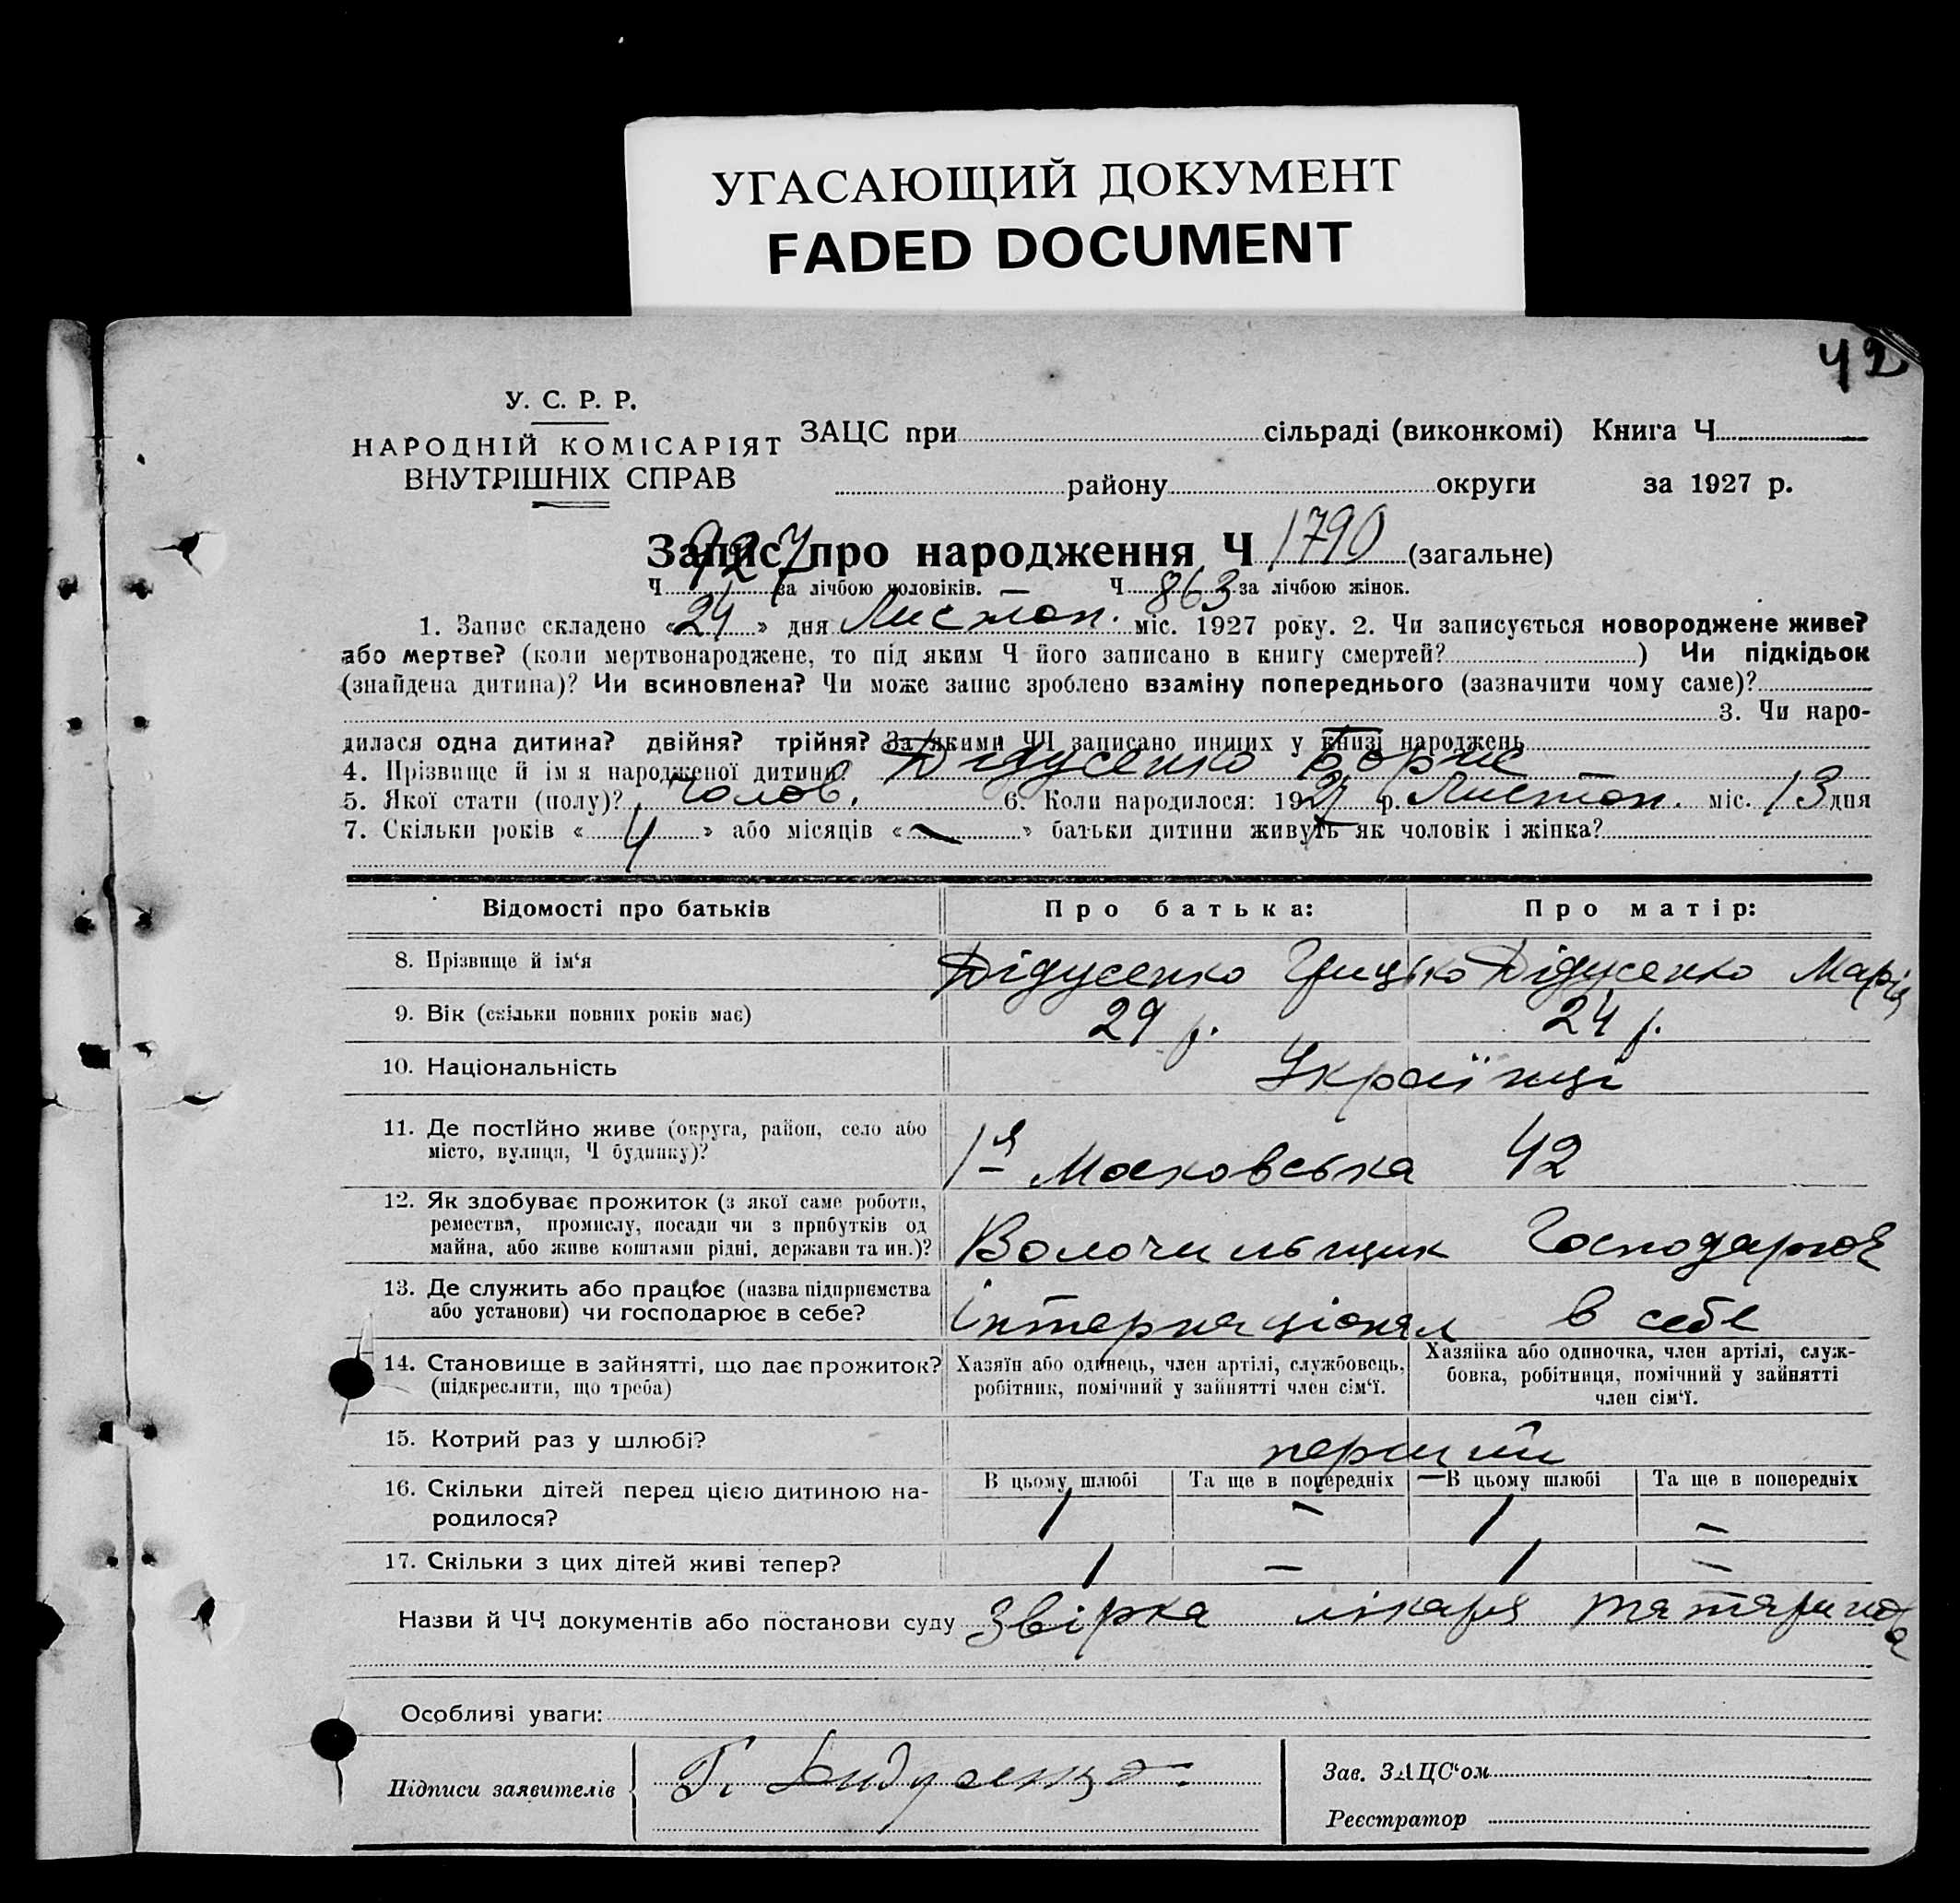 УГАСАЮЩИЙ ДОКУМЕНТ
FADED DOCUMENT
42
У. С. Р. Р.
НАРОДНІЙ КОМІСАРІЯТ
ВНУТРІШНІХ СПРАВ
ЗАЦС при сільраді (виконкомі) Книга Ч
району округи за 1927 р.
Запис про народження Ч 1790 (загальне)
Ч 927 за лічбою чоловіків. Ч 863 за лічбою жінок.
1. Запис складено «24» дня Листоп. міс. 1927 року. 2. Чи записується новороджене живе?
або мертве? (коли мертвонароджене, то під яким Ч його записано в книгу смертей? ) Чи підкідьок
(знайдена дитина)? Чи всиновлена? Чи може запис зроблено взаміну попереднього (зазначити чому саме)?
3. Чи наро-
дилася одна дитина? двійня? трійня? За якими ЧЧ записано инших у книзі народжень
4. Прізвище й ім'я народженої дитини? Дідусенко Борис
5. Якої стати (полу)? Чолов. 6. Коли народилося: 1927 р. Листоп. міс. 13 дня
7. Скільки років «4» або місяців «—» батьки дитини живуть як чоловік і жінка?
Відомості про батьків Про батька: Про матір:
8. Прізвище й ім'я Дідусенко Грицько Дідусенко Марія
9. Вік (скільки повних років має) 29 р. 24 р.
10. Національність Українці
11. Де постійно живе (округа, район, село або
місто, вулиця, Ч будинку)? 1я Московська 42
12. Як здобуває прожиток (з якої саме роботи,
ремества, промислу, посади чи з прибутків од
майна, або живе коштами рідні, держави та ин.)? Волочильщик Господарює
13. Де служить або працює (назва підприємства
або установи) чи господарює в себе? Інтернаціонял в себе
14. Становище в зайнятті, що дає прожиток?
(підкреслити, що треба)
Хазяїн або одинець, член артілі, службовець,
робітник, помічний у зайнятті член сім'ї.
Хазяйка або одиночка, член артілі, служ-
бовка, робітниця, помічний у зайнятті
член сім'ї.
15. Котрий раз у шлюбі? перший
В цьому шлюбі Та ще в попередніх В цьому шлюбі Та ще в попередніх
16. Скільки дітей перед цією дитиною на-
родилося? 1 — 1 —
17. Скільки з цих дітей живі тепер? 1 — 1 —
Назви й ЧЧ документів або постанови суду Звірка лікаря
Особливі уваги:
Підписи заявителів Г. Дидусенко
Зав. ЗАЦС'ом
Реєстратор